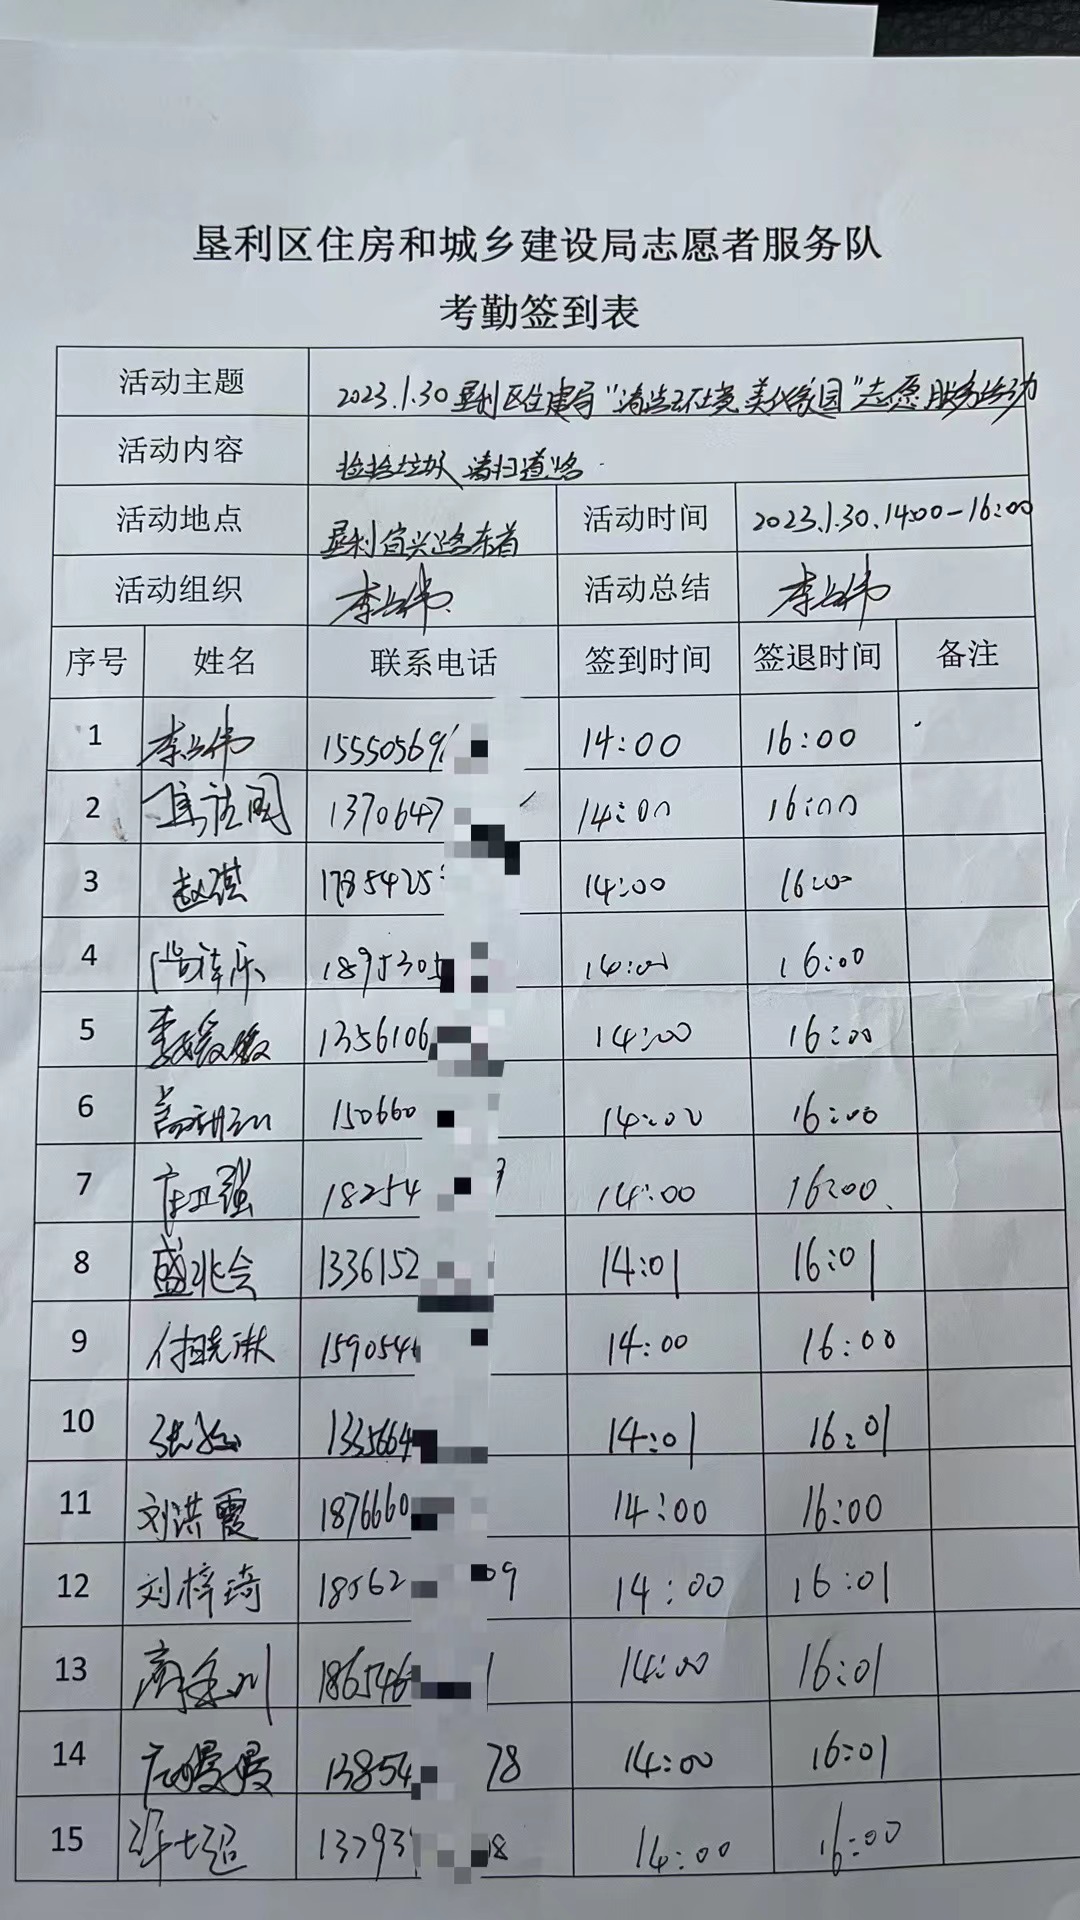 垦利区住房和城乡建设局志愿者服务队
考勤签到表
活动主题 2023.1.30 垦利区住建局“清洁环境 美化家园”志愿服务活动
活动内容 捡拾垃圾 清扫道路
活动地点 垦利宜兴路东首 活动时间 2023.1.30.14:00-16:00
活动组织 活动总结
序号 姓名 联系电话 签到时间 签退时间 备注
1 15550569 14:00 16:00
2 1370647 14:00 16:00
3 赵淇 1785425 14:00 16:00
4 1895305 14:00 16:00
5 李媛媛 1356106 14:00 16:00
6 150660 14:00 16:00
7 18254 14:00 16:00
8 盛兆会 1336152 14:01 16:01
9 付晓琳 159054 14:00 16:00
10 1335664 14:01 16:01
11 刘洪霞 1876660 14:00 16:00
12 刘梓琦 18562 09 14:00 16:01
13 186546 1 14:00 16:01
14 13854 78 14:00 16:01
15 许士超 13793 8 14:00 16:00